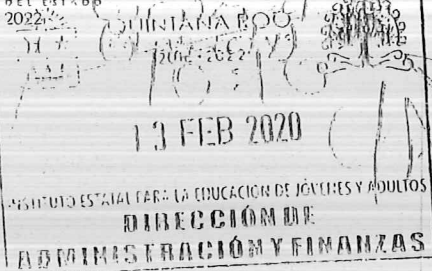 DEL ESTADO
2022
QUINTANA ROO
2022
13 FEB 2020
INSTITUTO ESTATAL PARA LA EDUCACIÓN DE JÓVENES Y ADULTOS
DIRECCIÓN DE
ADMINISTRACIÓN Y FINANZAS